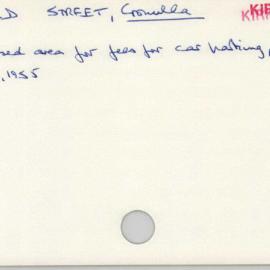 D STREET, Cronulla
sed area for fees for car parking,
, 1955